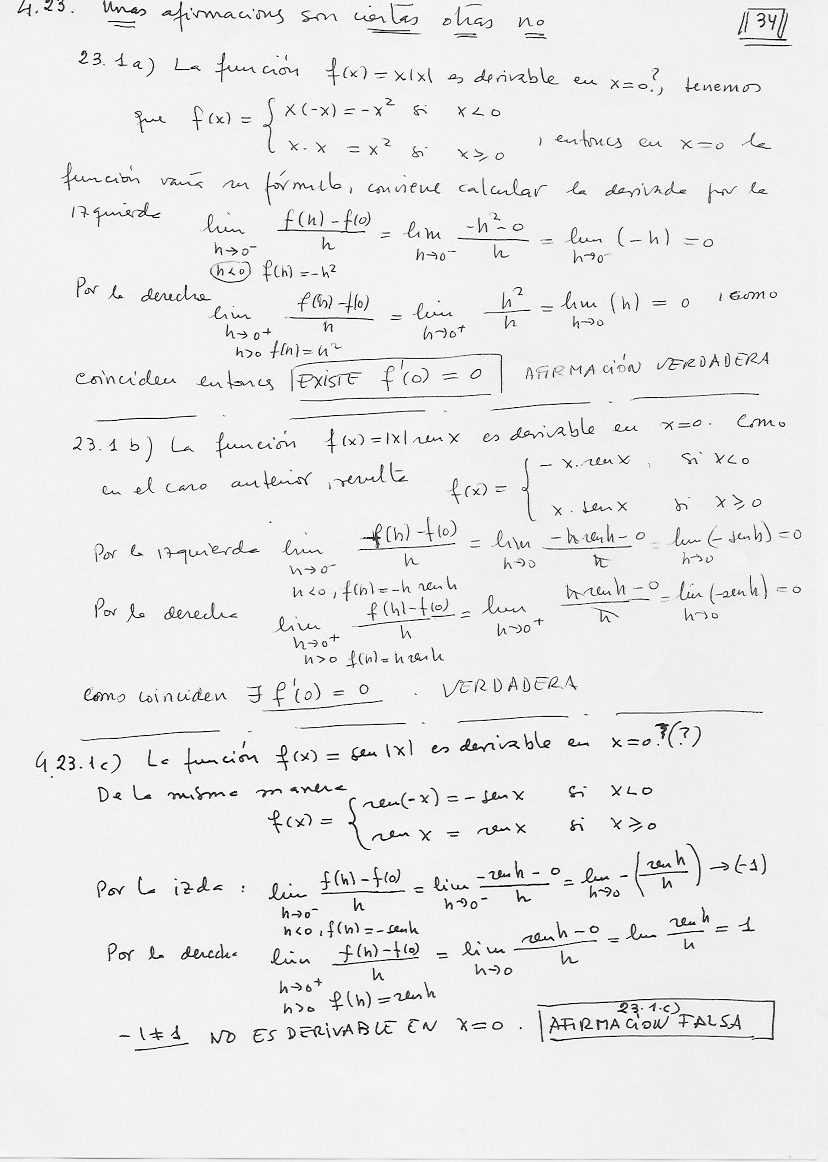 4.23. Unas afirmacions son ciertas otras no
34
23.1a) La función f(x) = x|x| es derivable en x=0?, tenemos
que f(x) = { x(-x) = -x² si x<0
x·x = x² si x≥0 , entonces en x=0 la
función varía su fórmula, conviene calcular la derivada por la
izquierda lim h→0⁻ (f(h)-f(0))/h = lim h→0⁻ (-h²-0)/h = lim h→0⁻ (-h) = 0
h<0 f(h) = -h²
Por la derecha lim h→0⁺ (f(h)-f(0))/h = lim h→0⁺ h²/h = lim h→0 (h) = 0 , como
h>0 f(h) = h²
coinciden entonces EXISTE f'(0) = 0 AFIRMACIÓN VERDADERA
23.1 b) La función f(x) = |x| sen x es derivable en x=0. Como
en el caso anterior, resulta f(x) = { -x·sen x, si x<0
x·sen x si x≥0
Por la izquierda lim h→0⁻ (f(h)-f(0))/h = lim h→0 (-h sen h - 0)/h = lim h→0 (-sen h) = 0
h<0, f(h) = -h sen h
Por la derecha lim h→0⁺ (f(h)-f(0))/h = lim h→0⁺ (h sen h - 0)/h = lim h→0 (-sen h) = 0
h>0 f(h) = h sen h
Como coinciden ∃ f'(0) = 0 . VERDADERA
4.23.1c) La función f(x) = sen |x| es derivable en x=0?(?)
De la misma manera
f(x) = { sen(-x) = -sen x si x<0
sen x = sen x si x≥0
Por la izda : lim h→0⁻ (f(h)-f(0))/h = lim h→0⁻ (-sen h - 0)/h = lim h→0 -(sen h/h) → (-1)
h<0, f(h) = -sen h
Por la derecha lim h→0⁺ (f(h)-f(0))/h = lim h→0 (sen h - 0)/h = lim sen h/h = 1
h>0 f(h) = sen h
-1≠1 NO ES DERIVABLE EN x=0 . 23.1.c)
AFIRMACION FALSA